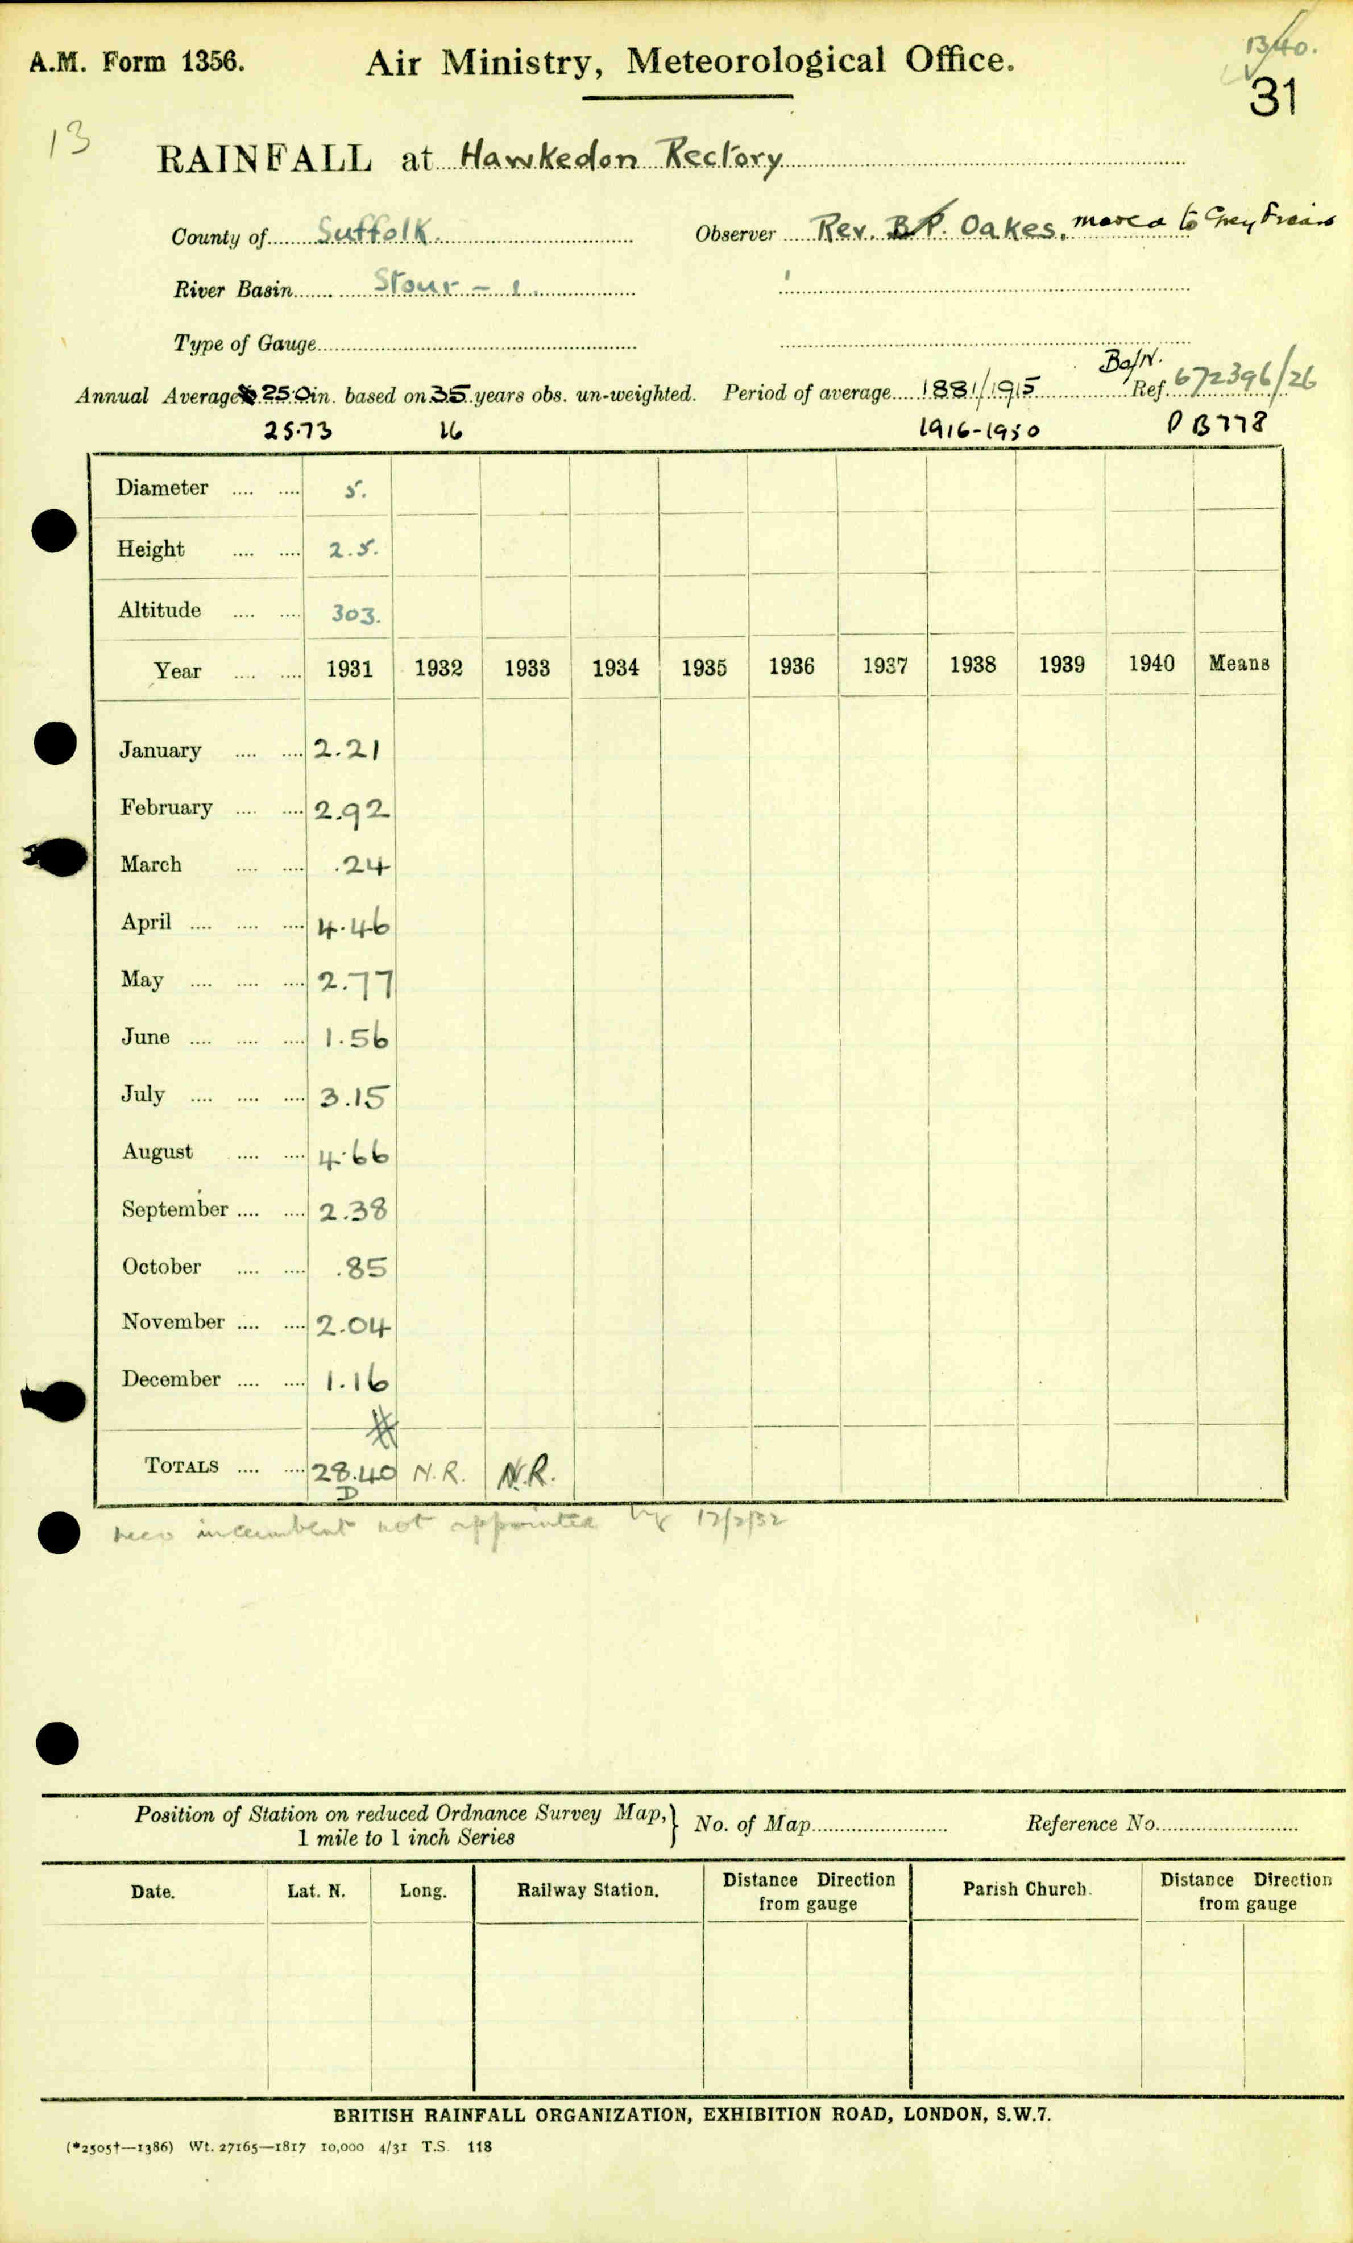 A.M. Form 1356. Air Ministry, Meteorological Office. 13/40.
31
13
RAINFALL at Hawkedon Rectory
County of Suffolk. Observer Rev. B.P. Oakes, moved to Grey Friars
River Basin Stour – 1.
Type of Gauge
Annual Average 25.0 in. based on 35 years obs. un-weighted. Period of average 1881/1915 Ref. 672396/26
25.73 16 1916-1950 P B778
Diameter .... .... 5.
Height .... .... 2.5.
Altitude .... .... 303.
Year .... .... 1931 1932 1933 1934 1935 1936 1937 1938 1939 1940 Means
January .... .... 2.21
February .... .... 2.92
March .... .... .24
April .... .... .... 4.46
May .... .... .... 2.77
June .... .... .... 1.56
July .... .... .... 3.15
August .... .... 4.66
September .... .... 2.38
October .... .... .85
November .... .... 2.04
December .... .... 1.16
TOTALS .... .... 28.40 N.R. N.R.
D
new incumbent not appointed by 17/2/32
Position of Station on reduced Ordnance Survey Map, } No. of Map Reference No.
1 mile to 1 inch Series
Date. Lat. N. Long. Railway Station. Distance Direction from gauge Parish Church. Distance Direction from gauge
BRITISH RAINFALL ORGANIZATION, EXHIBITION ROAD, LONDON, S.W.7.
(*2505†—1386) Wt. 27165—1817 10,000 4/31 T.S. 118